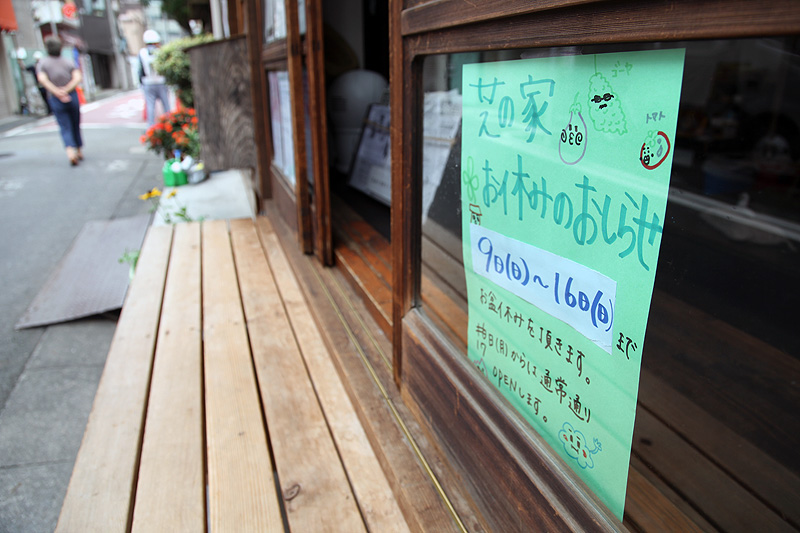 芝の家
ゴーヤ
トマト
お休みのおしらせ
9日(日)〜16日(日)まで
お盆休みを頂きます。
17日(月)からは通常通り
OPENします。